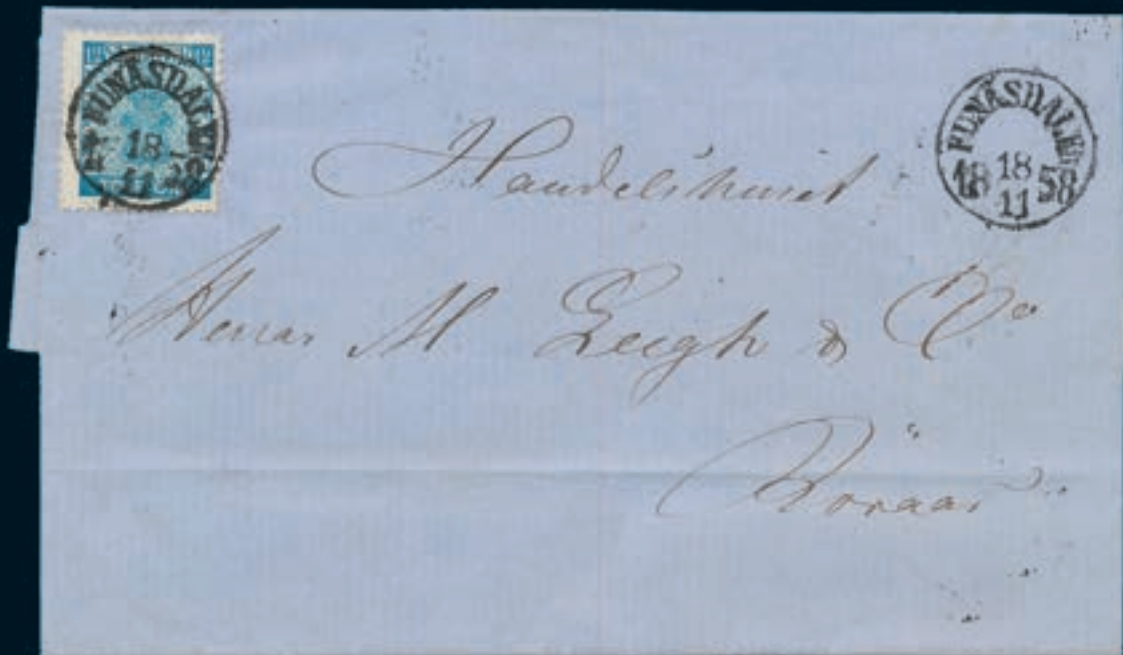 FUNÄSDALEN
18
11
18 58
FUNÄSDALEN
18 18 58
11
Handelshuset
Herrar M Leigh & Co
Röraas